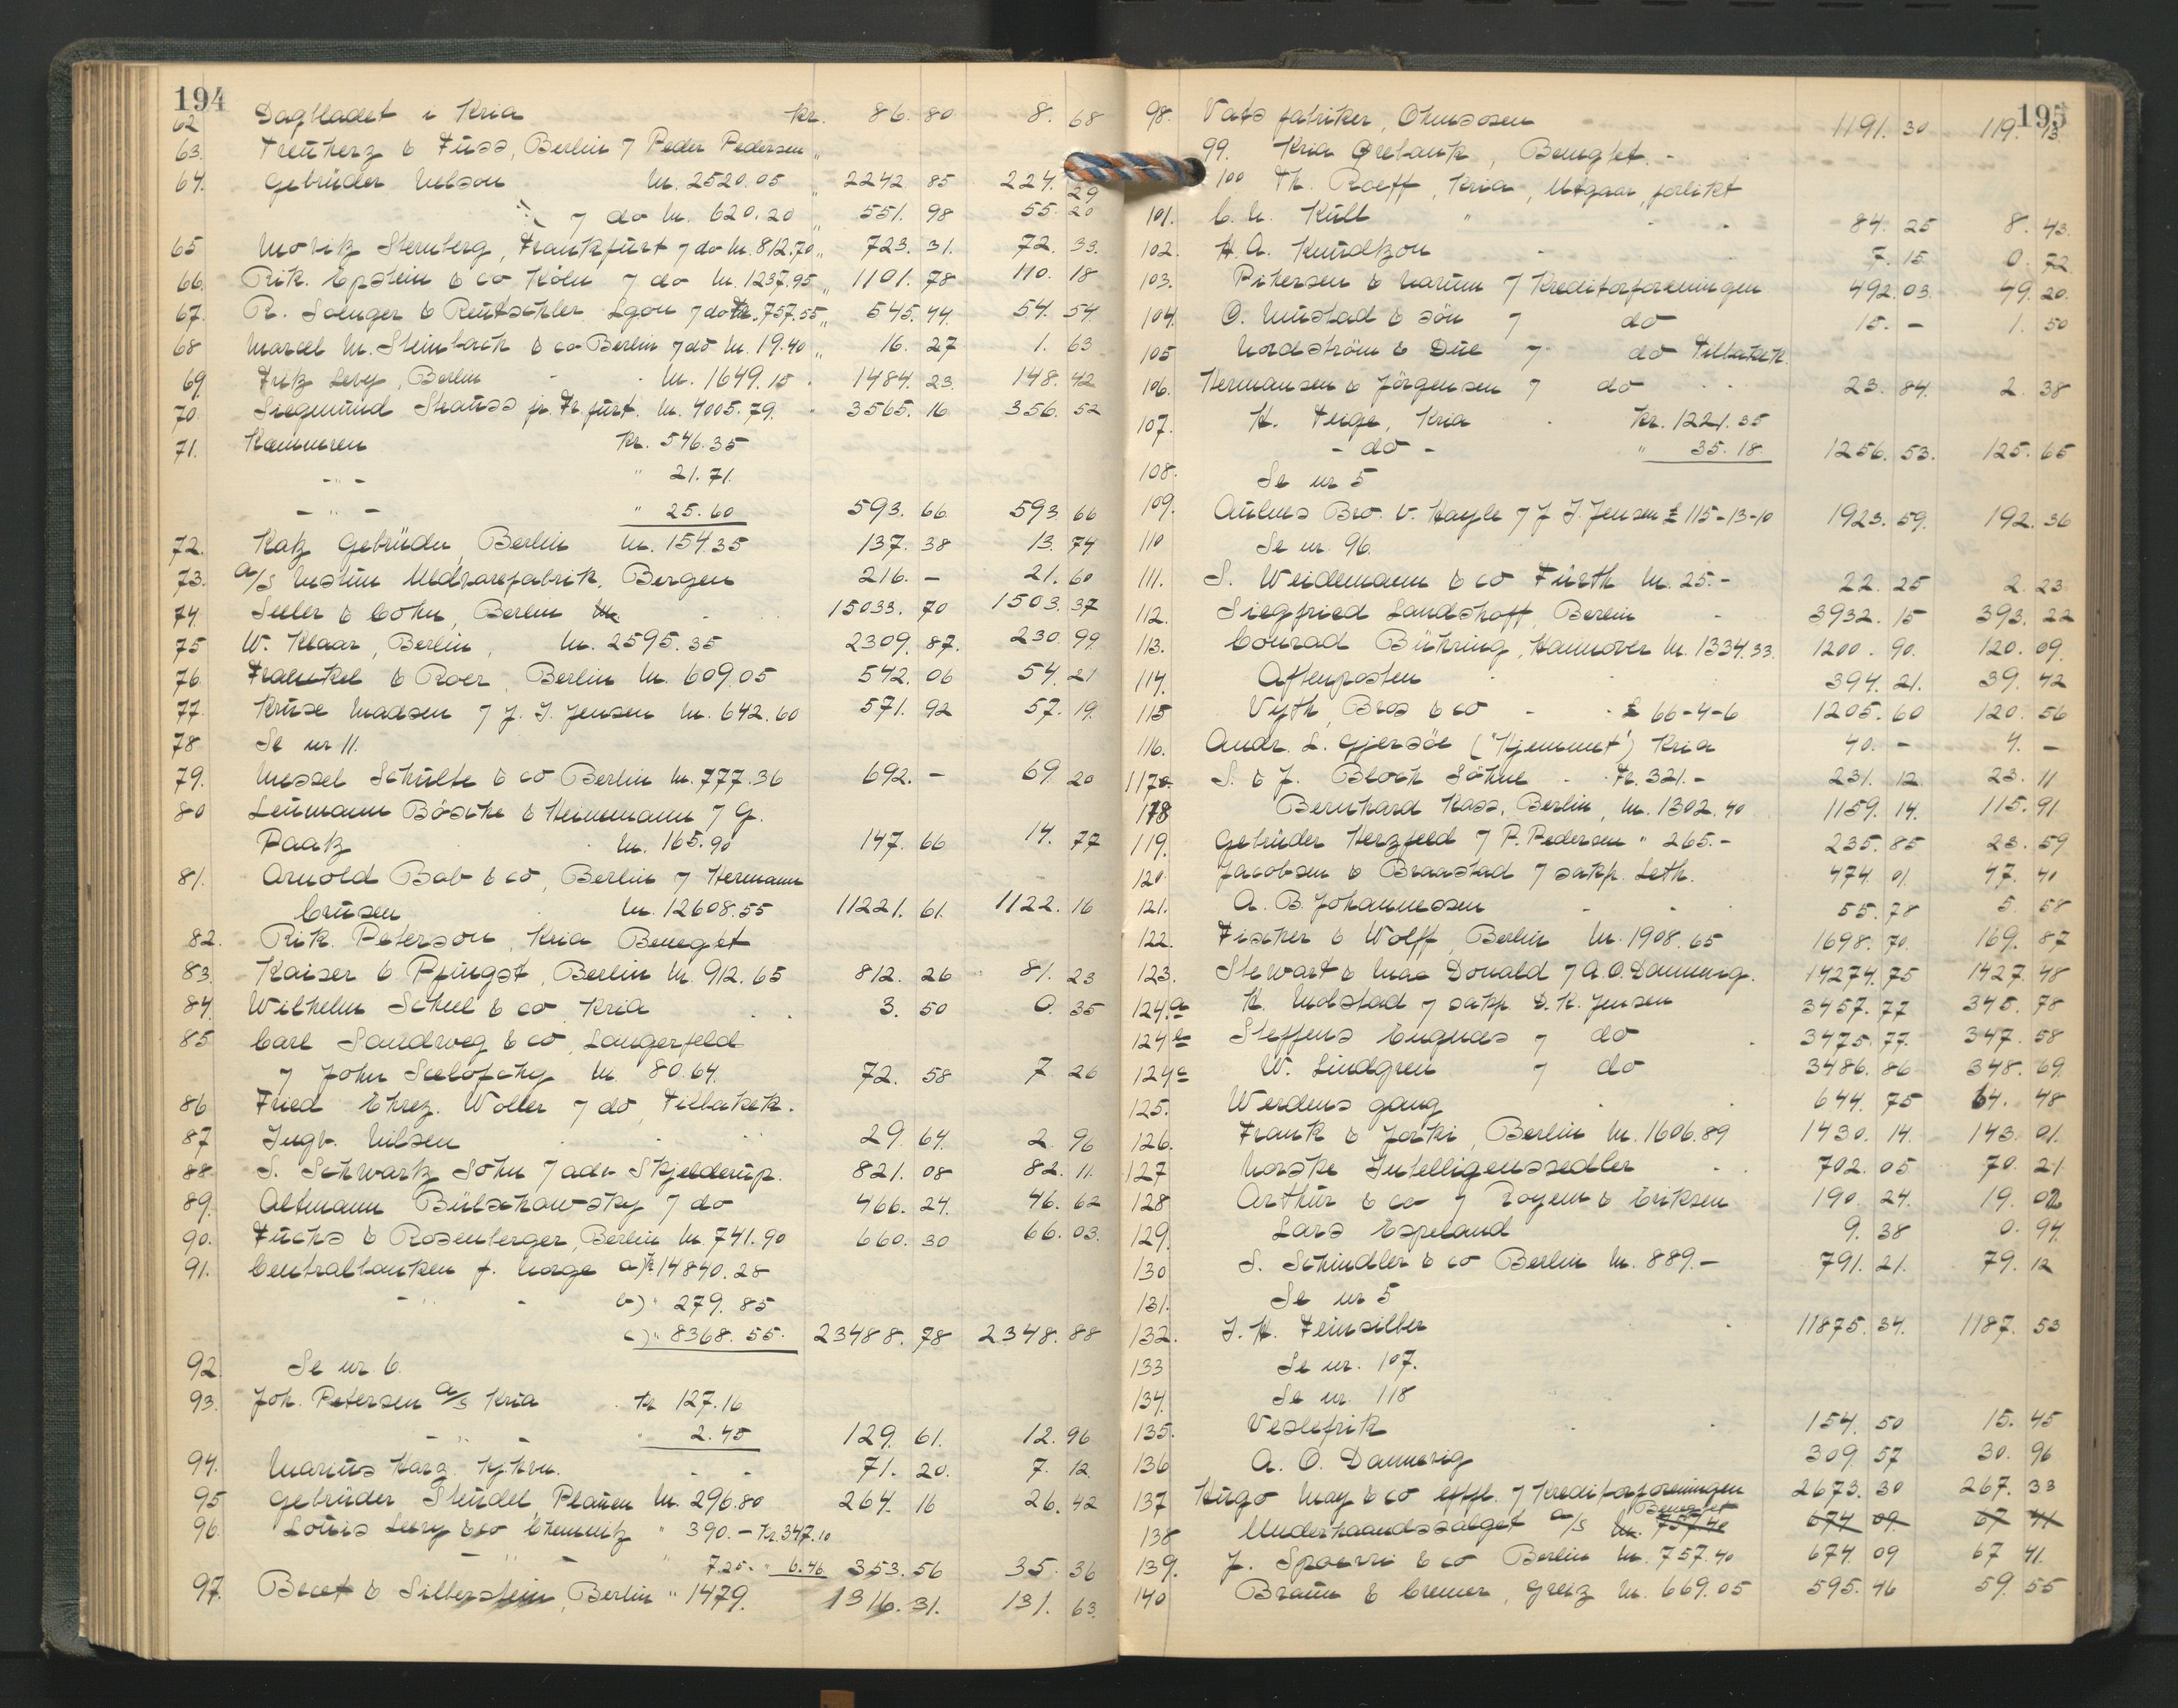 194
62 Dagbladet i Kria kr. 86. 80 8. 68
63. Treuherz & Fuss, Berlin 7 Peder Pedersen "
64. Gebrüder Nelson M. 2520.05 " 2242 85 224. 29
7 do M. 620.20 " 551. 98 55. 20
65 Moritz Sternberg, Frankfurt 7 do M. 812.70 " 723. 31. 72. 33.
66. Rik. Epstein & co Köln 7 do M. 1237.95 " 1101. 78 110. 18
67. R. Saenger & Rentschler Lyon 7 do fr. 757.55 " 545. 44. 54. 54
68 Marcel M. Steinbock & co Berlin 7 do M. 19.40 " 16. 27 1. 63
69. Fritz Levy, Berlin - M. 1649.15 . 1484. 23. 148. 42
70. Siegmund Strauss jr. Fr.furt. M. 4005.79. . 3565. 16. 356. 52
71. Kæmneren kr. 546.35
- " - " 21.71.
- " - " 25.60 593. 66. 593. 66
72. Katz Gebrüder, Berlin M. 154.35 137. 38 13. 74
73. a/s Uldvarefabrik, Bergen 216. - 21. 60
74. Seeler & Cohn, Berlin 15033. 70 1503. 37
75 W. Klaar, Berlin, M. 2595.35 2309. 87. 230. 99
76. Fraenkel & Roer, Berlin M. 609.05 542. 06 54. 21
77. Kruse Madsen 7 J. J. Jensen M. 642.60 571. 92 57. 19.
78 Se nr 11.
79. Messel Schulte & co Berlin M. 777.36 692. - 69. 20
80 Leumann Böscke & Heinemann 7 G.
Paatz M. 165.90 147. 66 14. 77
81. Arnold Bab & co, Berlin 7 Hermann
Crusen M. 12608.55 11221. 61. 1122. 16
82. Rik. Peterson, Kria Beneget
83. Kaiser & Pfingst, Berlin M. 912.65 812. 26 81. 23
84. Wilhelm Scheel & co Kria 3. 50 0. 35
85 Carl Sandweg & co, Langerfeld
7 John M. 80.64. 72. 58 7. 26
86 Fried Ehrez. Woller 7 do, tilbakek.
87 Ingv. Nilsen 29. 64. 2. 96
88. S. Schwartz Sohn 7 adv Skjelderup. 821. 08 82. 11.
89. Altmann Bülschowsky 7 do 466. 24. 46. 62
90. Fuchs & Rosenberger, Berlin M. 741.90 660. 30 66. 03.
91. Centralbanken f. Norge a) kr 14840.28
- " - b) " 279.85
c) " 8368.55. 23488. 78 2348. 88
92. Se nr. 6.
93. Joh. Petersen a/s Kria . kr 127.16
- " - " 2.45 129. 61. 12. 96
94. Marius Karz. 71. 20. 7. 12.
95 Gebrüder Steudel Plauen M. 296.80 264. 16 26. 42
96. Louis Levy & co Chemnitz " 390.- Kr. 347.10
- " - " 7.25. " 6.46 353. 56 35. 36
97. & Silberstein, Berlin " 1479. 1316. 31. 131. 63.
195
98. Vats fabriker, 1191. 30 119. 13
99. Kria Örebank, Benegtet -
100 Th. Roeff, Kria, Utgaar, forlikt
101. C. M. Kull " 84. 25 8. 43.
102. H. A. Knudtzon 7. 15 0. 72
103. Pikersen & Narum 7 Kreditorforeningen 492. 03. 49. 20.
104. O. Mustad & sön 7 do 15. - 1. 50
105 Nordström & Due 7 do tilbakek.
106. Hermansen & Jörgensen 7 do 23. 84. 2. 38
107. H. Teige, Kria . kr. 1221.35
- do - " 35.18. 1256. 53. 125. 65
108. Se nr 5
109. Bro. v. Hayle 7 J. J. Jensen £ 115-13-10 1923. 59. 192. 36
110 Se nr. 96.
111. S. Weidemann & co Fürth M. 25.- 22. 25 2. 23.
112. Siegfried Landshoff, Berlin 3932. 15 393. 22
113. Conrad Bühring, Hannover M. 1334.33. 1200. 90. 120. 09.
114. Aftenposten 394. 21. 39. 42
115 Vyth Bros & co - £ 66-4-6 1205. 60 120. 56
116. Andr. L. Gjersöe ("Hjemmet") Kria 40. - 4. -
117. S. & J. Bloch Söhne - fr. 321.- 231. 12. 23. 11
118 Bernhard Kass, Berlin, M. 1302.40 1159. 14. 115. 91
119. Gebrüder Herzfeld 7 P. Pedersen " 265.- 235. 85 23. 59
120. Jacobsen & Braastad 7 sakf. Leth. 474. 01. 47. 40
121. A. B. Johannessen 55. 78 5. 58
122. Fischer & Wolff, Berlin M. 1908.65 1698. 70. 169. 87
123. Stewart & Mac Donald 7 A. O. Dannevig. 14274. 75 1427. 48
124.a K. Mobstad 7 sakf. D. K. Jensen 3457. 77 345. 78
124 b Steffens Engnæs 7 do 3475. 77. 347. 58
124 c W. Lindgren 7 do 3486. 86 348. 69.
125. Werdens gang 644. 75 64. 48
126. Frank & Jorki, Berlin M. 1606.89 1430. 14. 143. 01.
127 Norske Intelligenssedler 702. 05 70. 21
128 Arthur & co 7 Royem & Eriksen 190. 24. 19. 02
129. Lars Espeland 9. 38 0. 94.
130 S. Schindler & co Berlin M. 889.- 791. 21. 79. 12
131. Se nr 5
132. J. H. Feinsilber 11875. 34. 1187. 53
133 Se nr. 107.
134. Se nr. 118
135. Veslefrik 154. 50 15. 45
136 A. O. Dannevig 309. 57 30. 96
137 Hugo May & co eftfl. 7 Kreditorforeningen 2673. 30 267. 33
Beneget
138 Underhaandssalget a/s M. 757.40 674 09 67 41
139. J. Spoerri & co Berlin M. 757.40 674. 09 67 41.
140 Braun & Cremer, Greiz M. 669.05 595. 46 59. 55